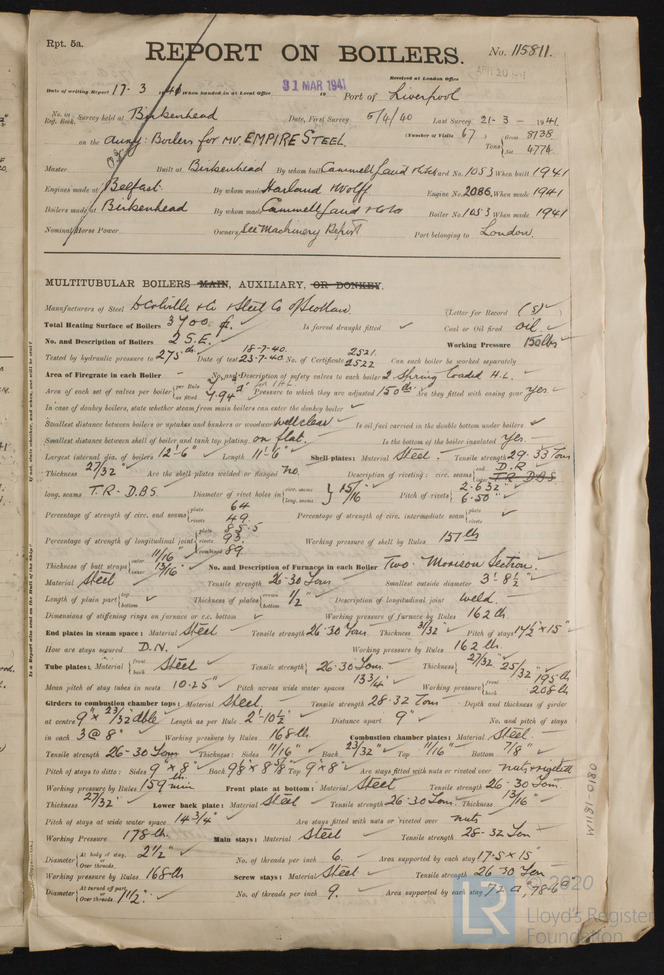 Rpt. 5a.
REPORT ON BOILERS.
No. 115811.
Received at London Office
Date of writing Report 17-3 1941 When handed in at Local Office 31 MAR 1941 19 Port of Liverpool
No. in Reg. Book. Survey held at Birkenhead Date, First Survey 5/4/40 Last Survey 21-3-1941
on the Auxy: Boilers for MV. EMPIRE STEEL. (Number of Visits 67) Tons Gross 8138 Net 4774
Master Built at Birkenhead By whom built Cammell Laird & Co Ltd Yard No. 1053 When built 1941
Engines made at Belfast By whom made Harland & Wolff Engine No. 2086 When made 1941
Boilers made at Birkenhead By whom made Cammell Laird & Co Ltd Boiler No. 1053 When made 1941
Nominal Horse Power Owners See Machinery Report Port belonging to London.
MULTITUBULAR BOILERS MAIN, AUXILIARY, OR DONKEY.
Manufacturers of Steel D Colville & Co & Steel Co of Scotland (Letter for Record (S))
Total Heating Surface of Boilers 3700 Is forced draught fitted ✓ Coal or Oil fired Oil
No. and Description of Boilers 2 S.E. Working Pressure 150 lbs
Tested by hydraulic pressure to 275 lb Date of test 18-7-40. 23-7-40 No. of Certificate 2521. 2522 Can each boiler be worked separately
Area of Firegrate in each Boiler — No. and Description of safety valves to each boiler 2 Spring loaded H.L.
Area of each set of valves per boiler per Rule as fitted 7.94 Pressure to which they are adjusted 150 lb Are they fitted with easing gear yes
In case of donkey boilers, state whether steam from main boilers can enter the donkey boiler ✓
Smallest distance between boilers or uptakes and bunkers or woodwork well clear Is oil fuel carried in the double bottom under boilers ✓
Smallest distance between shell of boiler and tank top plating on flat. Is the bottom of the boiler insulated yes
Largest internal dia. of boilers 12'-6" Length 11'-6" Shell plates: Material Steel Tensile strength 29-33 Tons
Thickness 27/32" Are the shell plates welded or flanged no. Description of riveting: circ. seams end D.R inter T.R. D.B.S
long. seams T.R. D.B.S Diameter of rivet holes in circ. seams long. seams 15/16 Pitch of rivets 2.632" 6.50"
Percentage of strength of circ. end seams plate 64 rivets 49 Percentage of strength of circ. intermediate seam plate rivets ✓
Percentage of strength of longitudinal joint plate 85.5 rivets 93. combined 89 Working pressure of shell by Rules 157 lb
Thickness of butt straps outer 11/16" inner 13/16" No. and Description of Furnaces in each Boiler Two Morison Section.
Material Steel Tensile strength 26-30 Tons Smallest outside diameter 3'-8½"
Length of plain part top bottom Thickness of plates crown bottom ½" Description of longitudinal joint weld.
Dimensions of stiffening rings on furnace or c.c. bottom ✓ Working pressure of furnace by Rules 162 lb
End plates in steam space: Material Steel Tensile strength 26-30 Tons Thickness Pitch of stays 17½" x 15"
How are stays secured D.N. Working pressure by Rules 162 lb.
Tube plates: Material front back Steel Tensile strength 26-30 Tons Thickness 27/32" 25/32"
Mean pitch of stay tubes in nests 10.25" Pitch across wide water spaces 13¾" Working pressure front 195 lb back 208 lb
Girders to combustion chamber tops: Material Steel. Tensile strength 28-32 Tons Depth and thickness of girder
at centre 9" x 23/32" dble Length as per Rule 2'-10½" Distance apart 9" No. and pitch of stays
in each 3 @ 8" Working pressure by Rules 168 lb. Combustion chamber plates: Material Steel.
Tensile strength 26-30 Tons Thickness: Sides 11/16" Back 23/32" Top 11/16" Bottom 7/8"
Pitch of stays to ditto: Sides 9" x 8" Back Top 9" x 8" Are stays fitted with nuts or riveted over nuts & riveted
Working pressure by Rules 159 lb. Front plate at bottom: Material Steel Tensile strength 26-30 Tons
Thickness 27/32" Lower back plate: Material Steel Tensile strength 26-30 Tons Thickness 13/16"
Pitch of stays at wide water space 14¾" Are stays fitted with nuts or riveted over nuts
Working Pressure 178 lb Main stays: Material Steel Tensile strength 28-32 Ton
Diameter At body of stay, or Over threads. 2½" No. of threads per inch 6. Area supported by each stay 17.5 x 15"
Working pressure by Rules 168 lb Screw stays: Material Steel Tensile strength 26-30 Ton
Diameter At turned off part, or Over threads. 1½" No. of threads per inch 9. Area supported by each stay 72
0810-1811M
© 2020
LR
Lloyd's Register
Foundation